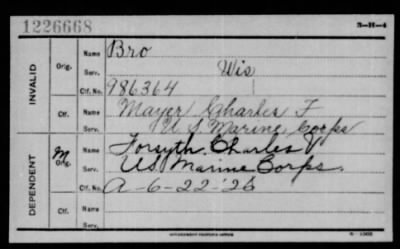 1226668
3-H-4
INVALID
Orig.
Name Bro
Serv. Wis
Ctf. No. 986364
Ctf.
Name Mayer Charles F
Serv. U S Marine Corps
DEPENDENT
M
Orig.
Name Forsyth Charles V
Serv. U.S. Marine Corps.
Ctf. No. A-6-22-'26
Ctf.
Name
Serv.
GOVERNMENT PRINTING OFFICE